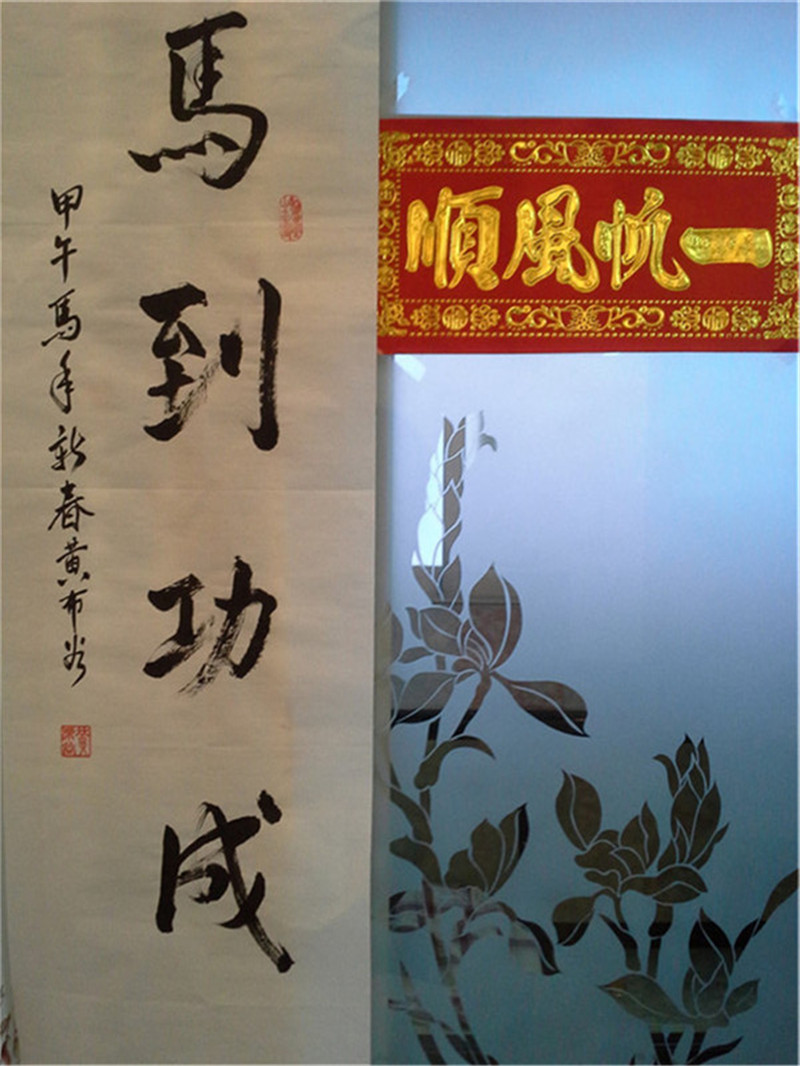 馬到功成
甲午馬年新春黄布谷
一帆風順